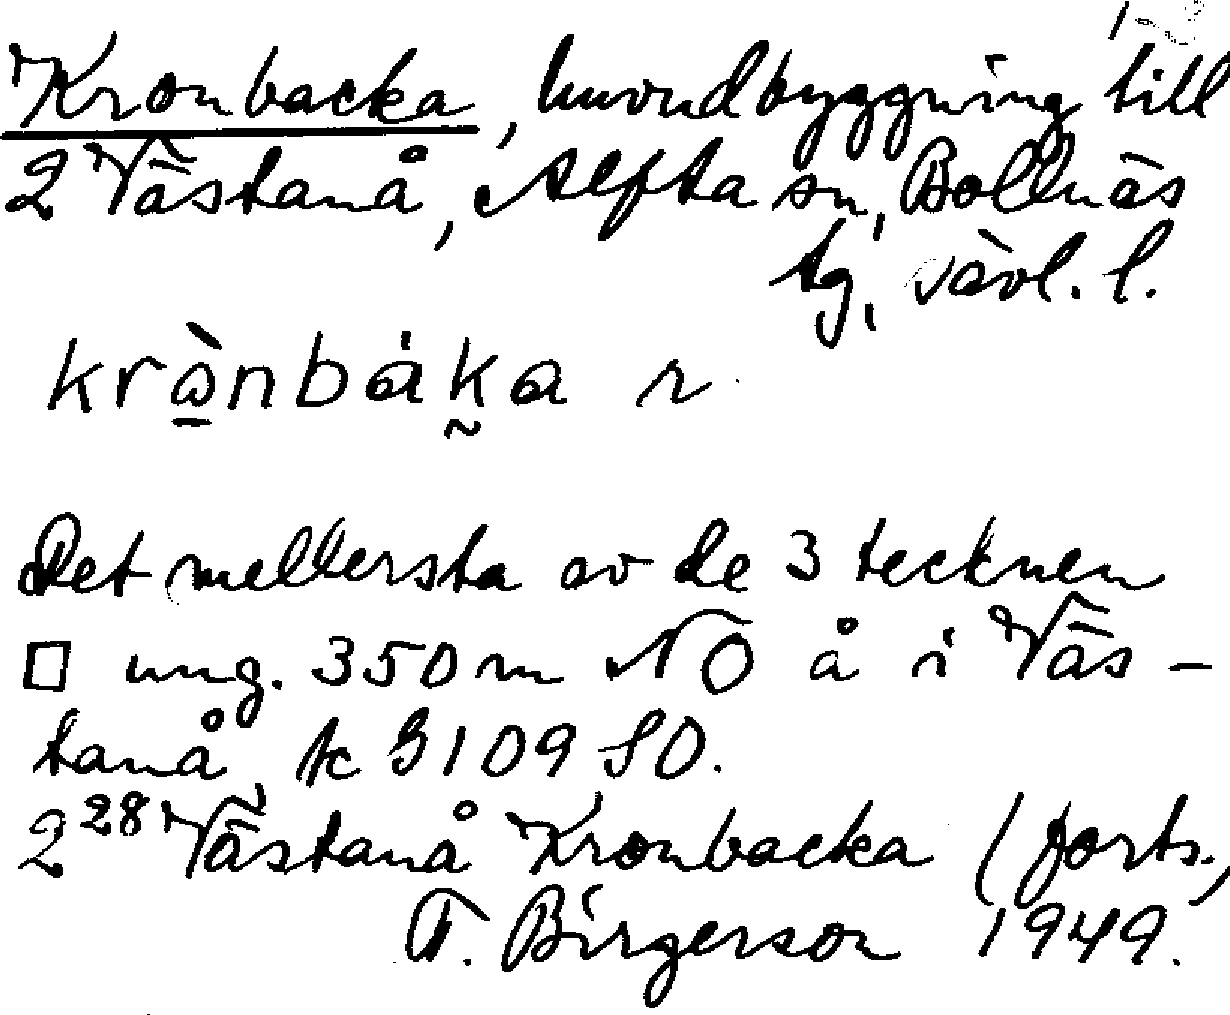 Kronbacka, huvudbyggning till
2 Västanå, Alfta sn, Bollnäs
tg, Gävl. l.
krònbáka r
Det mellersta av de 3 tecknen
□ ung. 350 m NO å i Väs-
tanå, tc G109 SO.
2²⁸ Västanå Kronbacka (forts.)
T. Birgerson 1949.